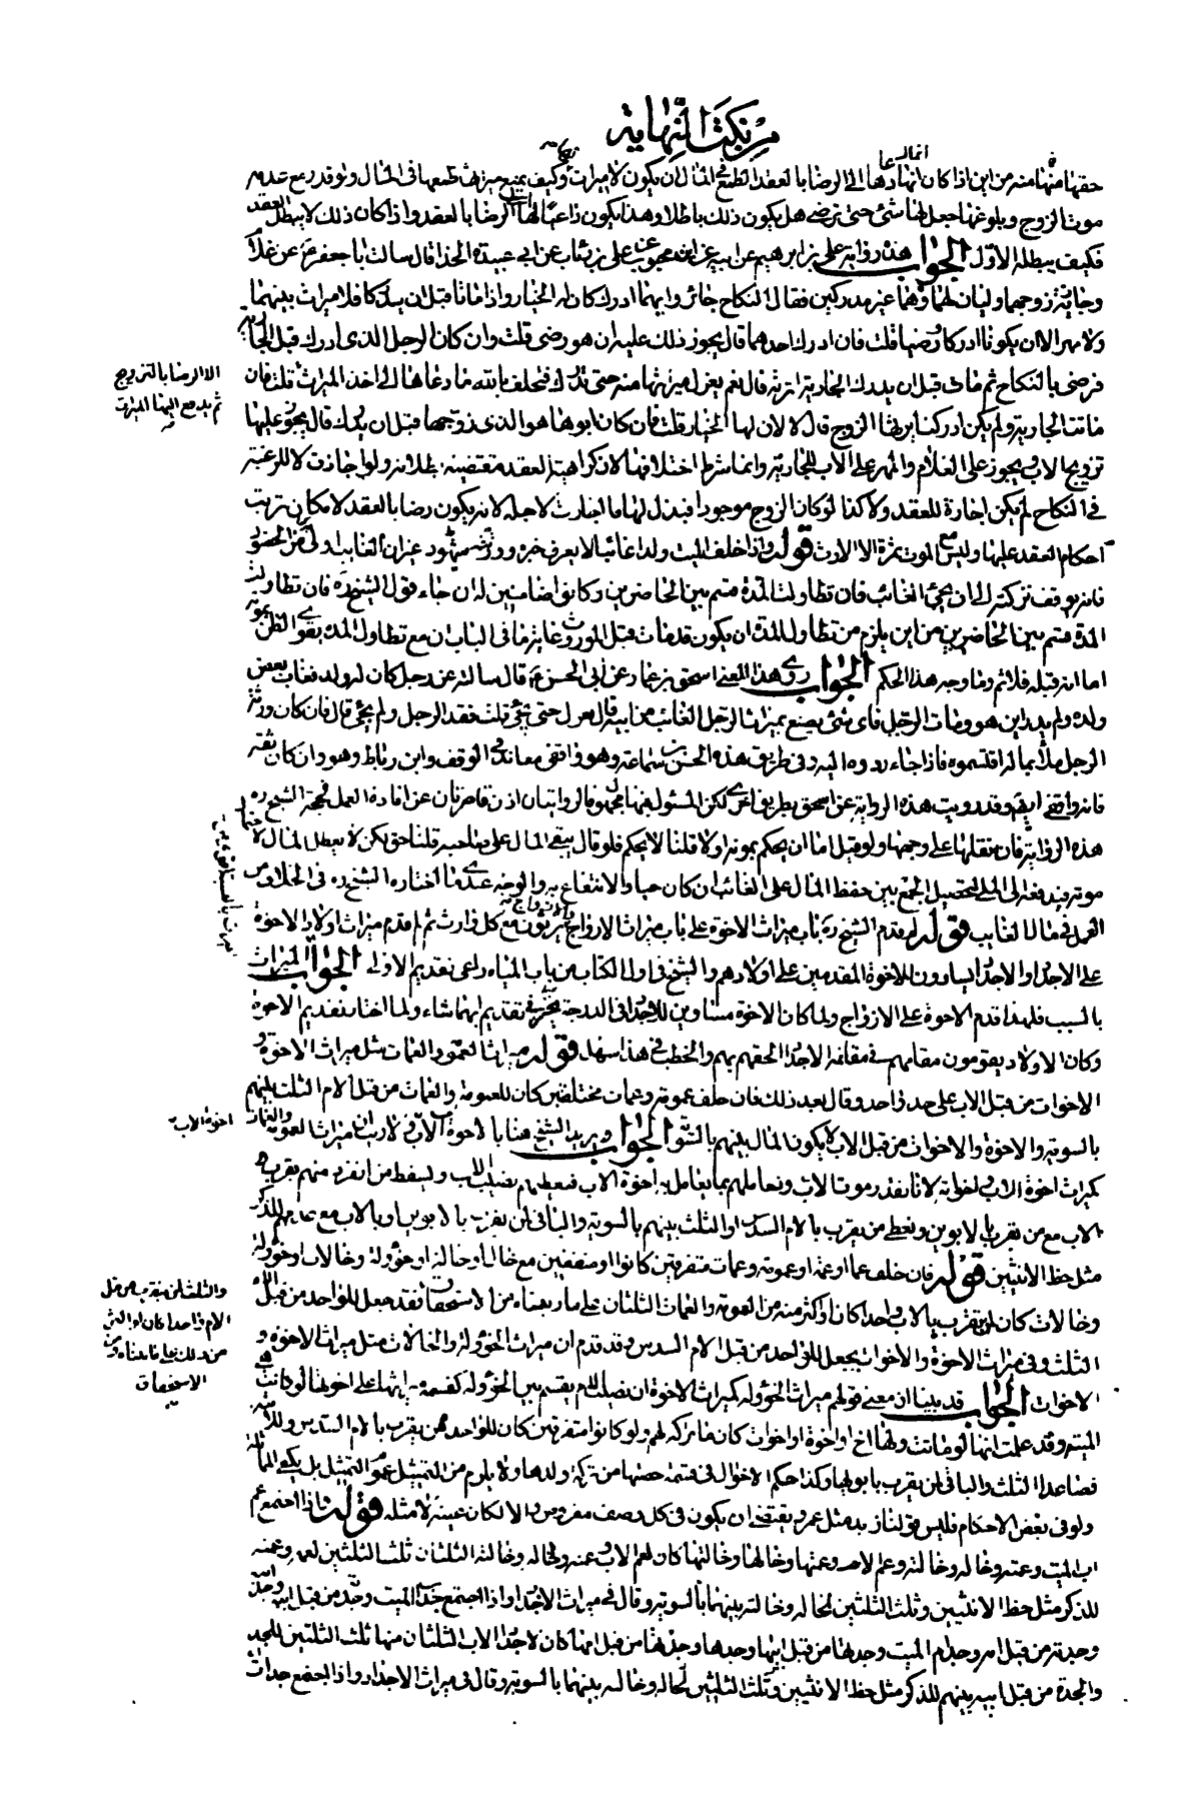 من نكت النهاية
حقها منها منه من اين اذا كان انما دعاها الى الرضا بالعقد الطمع في المال ان يكون لا ميراث وكيف يمنع ميراث طمعها في المال ولو قدر مع عدم
موت الزوج وبلوغها جعل لها شئ حتى ترضى هل يكون ذلك باطلا وهذا يكون داعيا لها الى الرضا بالعقد واذا كان ذلك لا يبطل العقد
فكيف يبطله الاول الجواب هذه رواية علي بن ابرهيم عن ابيه عن ابن محبوب عن علي بن رئاب عن ابي عبيدة الحذا قال سالت ابا جعفر ع عن غلام
وجارية زوجهما وليان لهما وهما غير مدركين فقال النكاح جائز وايهما ادرك كان له الخيار واذا ماتا قبل ان يدركا فلا ميراث بينهما
ولا مهر الا ان يكونا ادركا ورضيا قلت فان ادرك احدهما قال يجوز ذلك عليه ان هو رضى قلت وان كان الرجل الذي ادرك قبل الجارية
فرضى بالنكاح ثم مات قبل ان يدرك الجارية اترثه قال نعم يعزل ميراثها منه حتى تدرك فتحلف بالله ما دعاها الى اخذ الميراث قلت فان
الا الرضا بالتزويج
ثم يدفع اليها الميراث
ماتت الجارية ولم يكن ادركت ايرثها الزوج قال لا لان لها الخيار قلت فان كان ابوها هو الذي زوجها قبل ان يدرك قال يجوز عليها
تزويج الاب ويجوز على الغلام والمهر على الاب للجارية وانما شرط احلافها لان كراهية العقد مقتضية بطلانه ولو اجازت لا للرغبة
في النكاح لم يكن اجازة للعقد ولا كذا لو كان الزوج موجودا فبذل لها ما اجازت لاجله لانه يكون رضا بالعقد لامكان ترتب
احكام العقد عليها وليس مع الموت ثمرة الا الارث قوله واذا خلف الميت ولدا غائبا لا يعرف خبره وورثة
فانه يوقف تركته الى ان يجئ الغائب فان تطاولت المدة قسم بين الحاضرين وكانوا ضامنين له ان جاء قول الشيخ ره فان تطاولت
المدة قسم بين الحاضرين من اين يلزم من تطاول المدة ان يكون قد مات قبل الموروث غاية ما في الباب ان مع تطاول المدة يقوى الظن بموته
اما انه قبله فلا ثم وما وجه هذا الحكم الجواب روى هذا المعنى اسحق بن عمار عن ابي الحسن ع قال سالته عن رجل كان له ولد فغاب بعض
ولده ولم يدر اين هو ومات الرجل فاى شئ يصنع بميراث الرجل الغائب من ابيه قال يعزل حتى يجئ قلت فقد الرجل ولم يجئ قال فان كان ورثة
الرجل ملأ بماله اقتسموه فاذا جاء ردوه اليه وفي طريق هذه الحسن بن سماعة وهو واقفي معاند في الوقف وابن رباط وهو وان كان ثقة
فانه واقفي ايضا وقد رويت هذه الرواية عن اسحق بطريق اخرى لكن المسئول فيها مجهول فالروايتان اذن قاصرتان عن افادة العمل فحجة الشيخ ره
هذه الرواية فان نقلها على وجهها ولو قيل اما ان يحكم بموته اولا قلنا لا يحكم فلو قال يبقى المال على صاحبه قلنا حق لكن لا يبطل المال لاحتمال
موته فيدفع الى الملى لتحصيل الجمع بين حفظ المال على الغائب ان كان حيا والانتفاع به والوجه عندى ما اختاره الشيخ ره في الخلاف من
العمل في مال الغايب قوله لم قدم الشيخ ره باب ميراث الاخوة على باب ميراث الازواج والازواج يرثون مع كل وارث ثم لم قدم ميراث اولاد الاخوة
على الاجداد والاجداد يساوون الاخوة المقدمين على اولادهم والشيخ في اول الكتاب من باب المياه راعى تقديم الاولى الجواب الميراث
بالسبب فلهذا قدم الاخوة على الازواج ولما كان الاخوة مساوين للاجداد في الدرجة تخير في تقديم ايهما شاء ولما اختار تقديم الاخوة
وكان الاولاد يقومون مقامهم في مقاسمة الاجداد الحقهم بهم والخطب في هذا سهل قوله ميراث العمومة والعمات مثل ميراث الاخوة و
الاخوات من قبل الاب على حد واحد وقال بعد ذلك فان خلف عمومة وعمات مختلفين كان للعمومة والعمات من قبل الام الثلث بينهم
بالسوية والاخوة والاخوات من قبل الاب لا يكون المال بينهم بالسوية الجواب يريد الشيخ هنا بالاخوة الاب ولا ريب ان ميراث العمومة والعمات
اخوة الاب
كميراث اخوة الاب واخواته لانا نقدر موت الاب ونعاملهم بما يعامل به اخوة الاب فنعطيهم نصيب الاب ونسقط من انفرد منهم بقرب
الاب مع من تقرب بالابوين ونعطى من يقرب بالام السدس او الثلث بينهم بالسوية والباقي لمن يقرب بالابوين او بالاب مع عدمهم للذكر
مثل حظ الانثيين قوله فان خلف عما او عمة او عمومة وعمات متفرقين كانوا او متفقين مع خال او خالة او خؤولة وخالات او خؤولة
وخالات كان لمن يقرب بالاب واحدا كان او اكثر منه من العمومة والعمات الثلثان على ما ربعناه من الاستحقاق فقد جعل للواحد من قبل الام
والثلث لمن يتقرب من قبل
الام واحدا كان او اكثر
من ذلك على ما بيناه من
الاستحقاق
الثلث وفي ميراث الاخوة والاخوات يجعل للواحد من قبل الام السدس وقد قدم ان ميراث الخؤولة والخالات مثل ميراث الاخوة و
الاخوات الجواب قد بينا ان معنى قولهم ميراث الخؤولة كميراث الاخوة ان نصيب الام يقسم بين الخؤولة كقسمة ميراثها على اخوتها لو كانت
الميتة وقد علمت انها لو ماتت ولها اخ او اخوة او اخوات كان ما تركه لهم ولو كانوا متفرقين كان للواحد ممن يقرب بالام السدس وللاثنين
فصاعدا الثلث والباقي لمن يقرب بابويها وكذا حكم الاخوال في قسمة حصتها من تركة ولدها ولا يلزم من التمثيل عموم التمثيل بل يكفى المماثلة
ولو في بعض الاحكام فليس قولنا زيد مثل عمرو يقتضى ان يكون في كل وصف مفروض والا لكان عينه لا مثله قوله واذا اجتمع عم
اب الميت وعمته وخاله وخالته وعم الام وعمتها وخالها وخالتها كان لعم الاب وعمته وخاله وخالته الثلثان ثلثا الثلثين لعمه وعمته
للذكر مثل حظ الانثيين وثلث الثلثين لخاله وخالته بينهما بالسوية وقال في ميراث الاجداد واذا اجتمع جدا الميت وجدته من قبل ابيه وجده
وجدته من قبل امه وجد ام الميت وجدتها من قبل ابيها وجدها وجدتها من قبل امها كان لاجداد الاب الثلثان منها ثلث الثلثين للجد
والجدة من قبل ابيه بينهم للذكر مثل حظ الانثيين وثلث الثلثين لخاله وخالته بينهما بالسوية وقال في ميراث الاجداد واذا اجتمع جدات